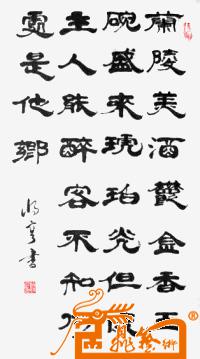 蘭陵美酒鬱金香玉
碗盛來琥珀光但使
主人能醉客不知何
處是他鄉
書